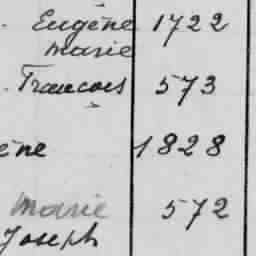 Eugène 1722
Marie
François 573
ène 1828
Marie 572
Joseph